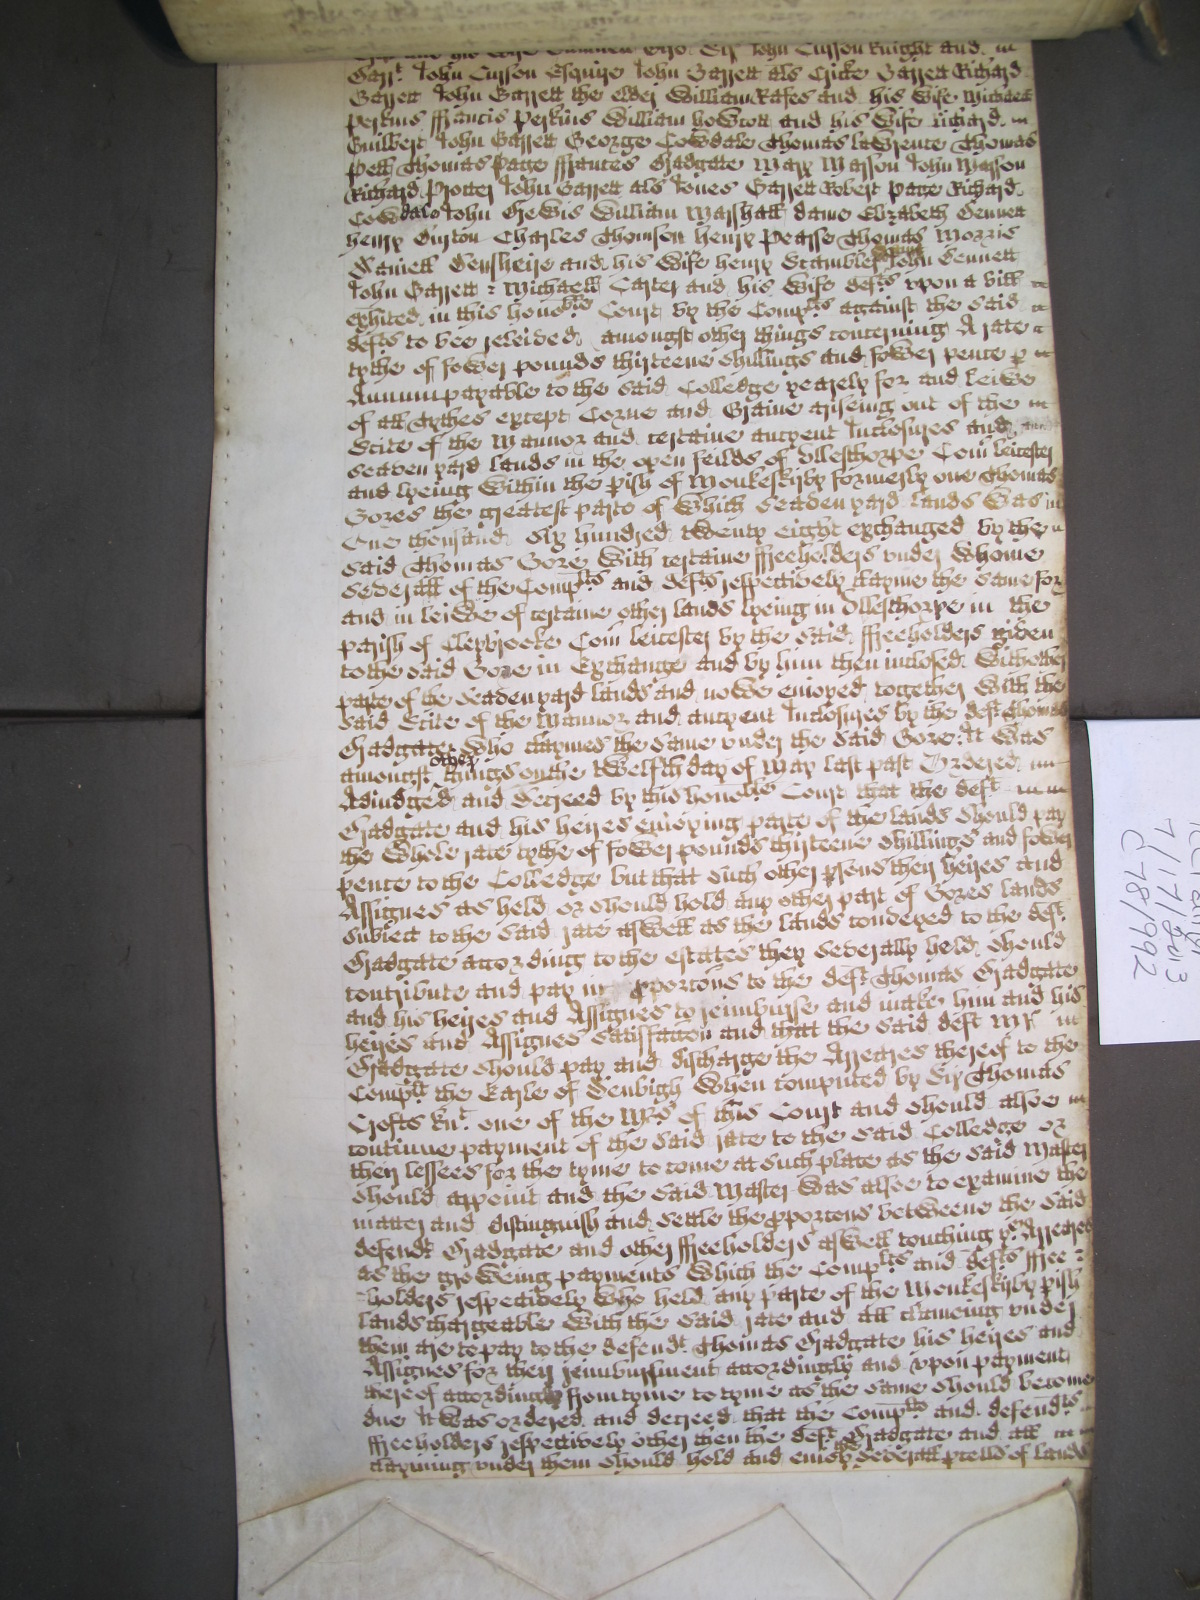 his wife Sir John Curson knight and
Barrt. John Curson Esquire John Garrett als Cricke Garrett Richard
Garrett John Garrett the elder William Kafes and his wife Michaell
Perkins ffrancis Perkins William howCott and his wife Richard
Guilbert John Garrett George Cowdale Thomas lawrence Thomas
Pell Thomas Page ffrances Gradgate Mary Masson John Masson
Richard Protter John Garrett als Jones Garrett Robert Page Richard
Cowdale John Lewis William Marshall dame Elizabeth Bennett
henry Girton Charles Thomson henry Pearsse Thomas Morris
Daniell and his wife henry Bramble John Bennett
John Garrett & Michaell Carter and his wife defts upon a bill
exhited in this honoble Court by the Complts against the said
defts to bee releived amongst other things concerning A rate
tythe of fower pounds thirteene shillings and fower pence p
Annum payable to the said Colledge yearely for and leiwe
of all tythes except Corne and Graine ariseing out of the
Scite of the Mannor and certaine antyent Inclosures and
seaven yard lands in the open feilds of Ullesthorpe Com leicester
and lyeing within the pish of Monkeskirby formerly one Thomas
Gores the greatest parte of which seaven yard lands was in
One thousand six hundred twenty eight exchanged by the
said Thomas Gore with certaine ffreeholders under whome
severall of the Complts and defts respectively clayme the same for
and in leiwe of certaine other lands lyeing in Ollesthorpe in the
parish of Cleybrooke Com leicester by the said ffreeholders given
to the said Gore in Exchange and by him then inclosed with other
parte of the seaven yard lands and nowe enjoyed together with the
said Scite of the Mannor and antyent Inclosures by the deft Thomas
Gradgate who claymes the same under the said Gore: It was
amongst other things on the twelfth day of May last past Ordered
Adiudged and decreed by this honoble Court that the deft
Gradgate and his heires enioying parte of the lands should pay
the whole rate tythe of fower pounds thirteene shillings and fower
pence to the Colledge but that such other psons their heires and
Assignes as held or should hold any other part of Gores lands
subiect to the said rate aswell as the lands conveyed to the deft
Gradgate according to the estates they severally held should
contribute and pay in pportons to the deft Thomas Gradgate
and his heires and Assignes to reimburse and make him and his
heires and Assignes satisfaccon and that the said deft Mr
Gradgate should pay and discharge the Arreares thereof to the
Complt the Earle of Denbigh when computed by Sir Thomas
Crofts knt one of the Mrs of this Court and should alsoe
continue payment of the said rate to the said Colledge or
their lessees for the tyme to come at such place as the said Master
should appoint and the said Master was alsoe to examine the
matter and distinguish and settle the pportons betweene the said
defendt Gradgate and other ffreeholders aswell touching ye Arreares
as the groweing payments which the Complts and defts ffree=
holders respectively who held any parte of the Monkeskirby pish
lands chargeable with the said rate and all claimeing under
them are to pay to the defendt Thomas Gradgate his heires and
Assignes for their reimbursment accordingly and upon payment
thereof accordingly from tyme to tyme as the same should become
due It was ordered and decreed that the Complts and defendts
ffreeholders respectively other then the deft Gradgate and all
clayming under them should hold and enioy the severall pcells of lands
7/17/2013
C78/1992